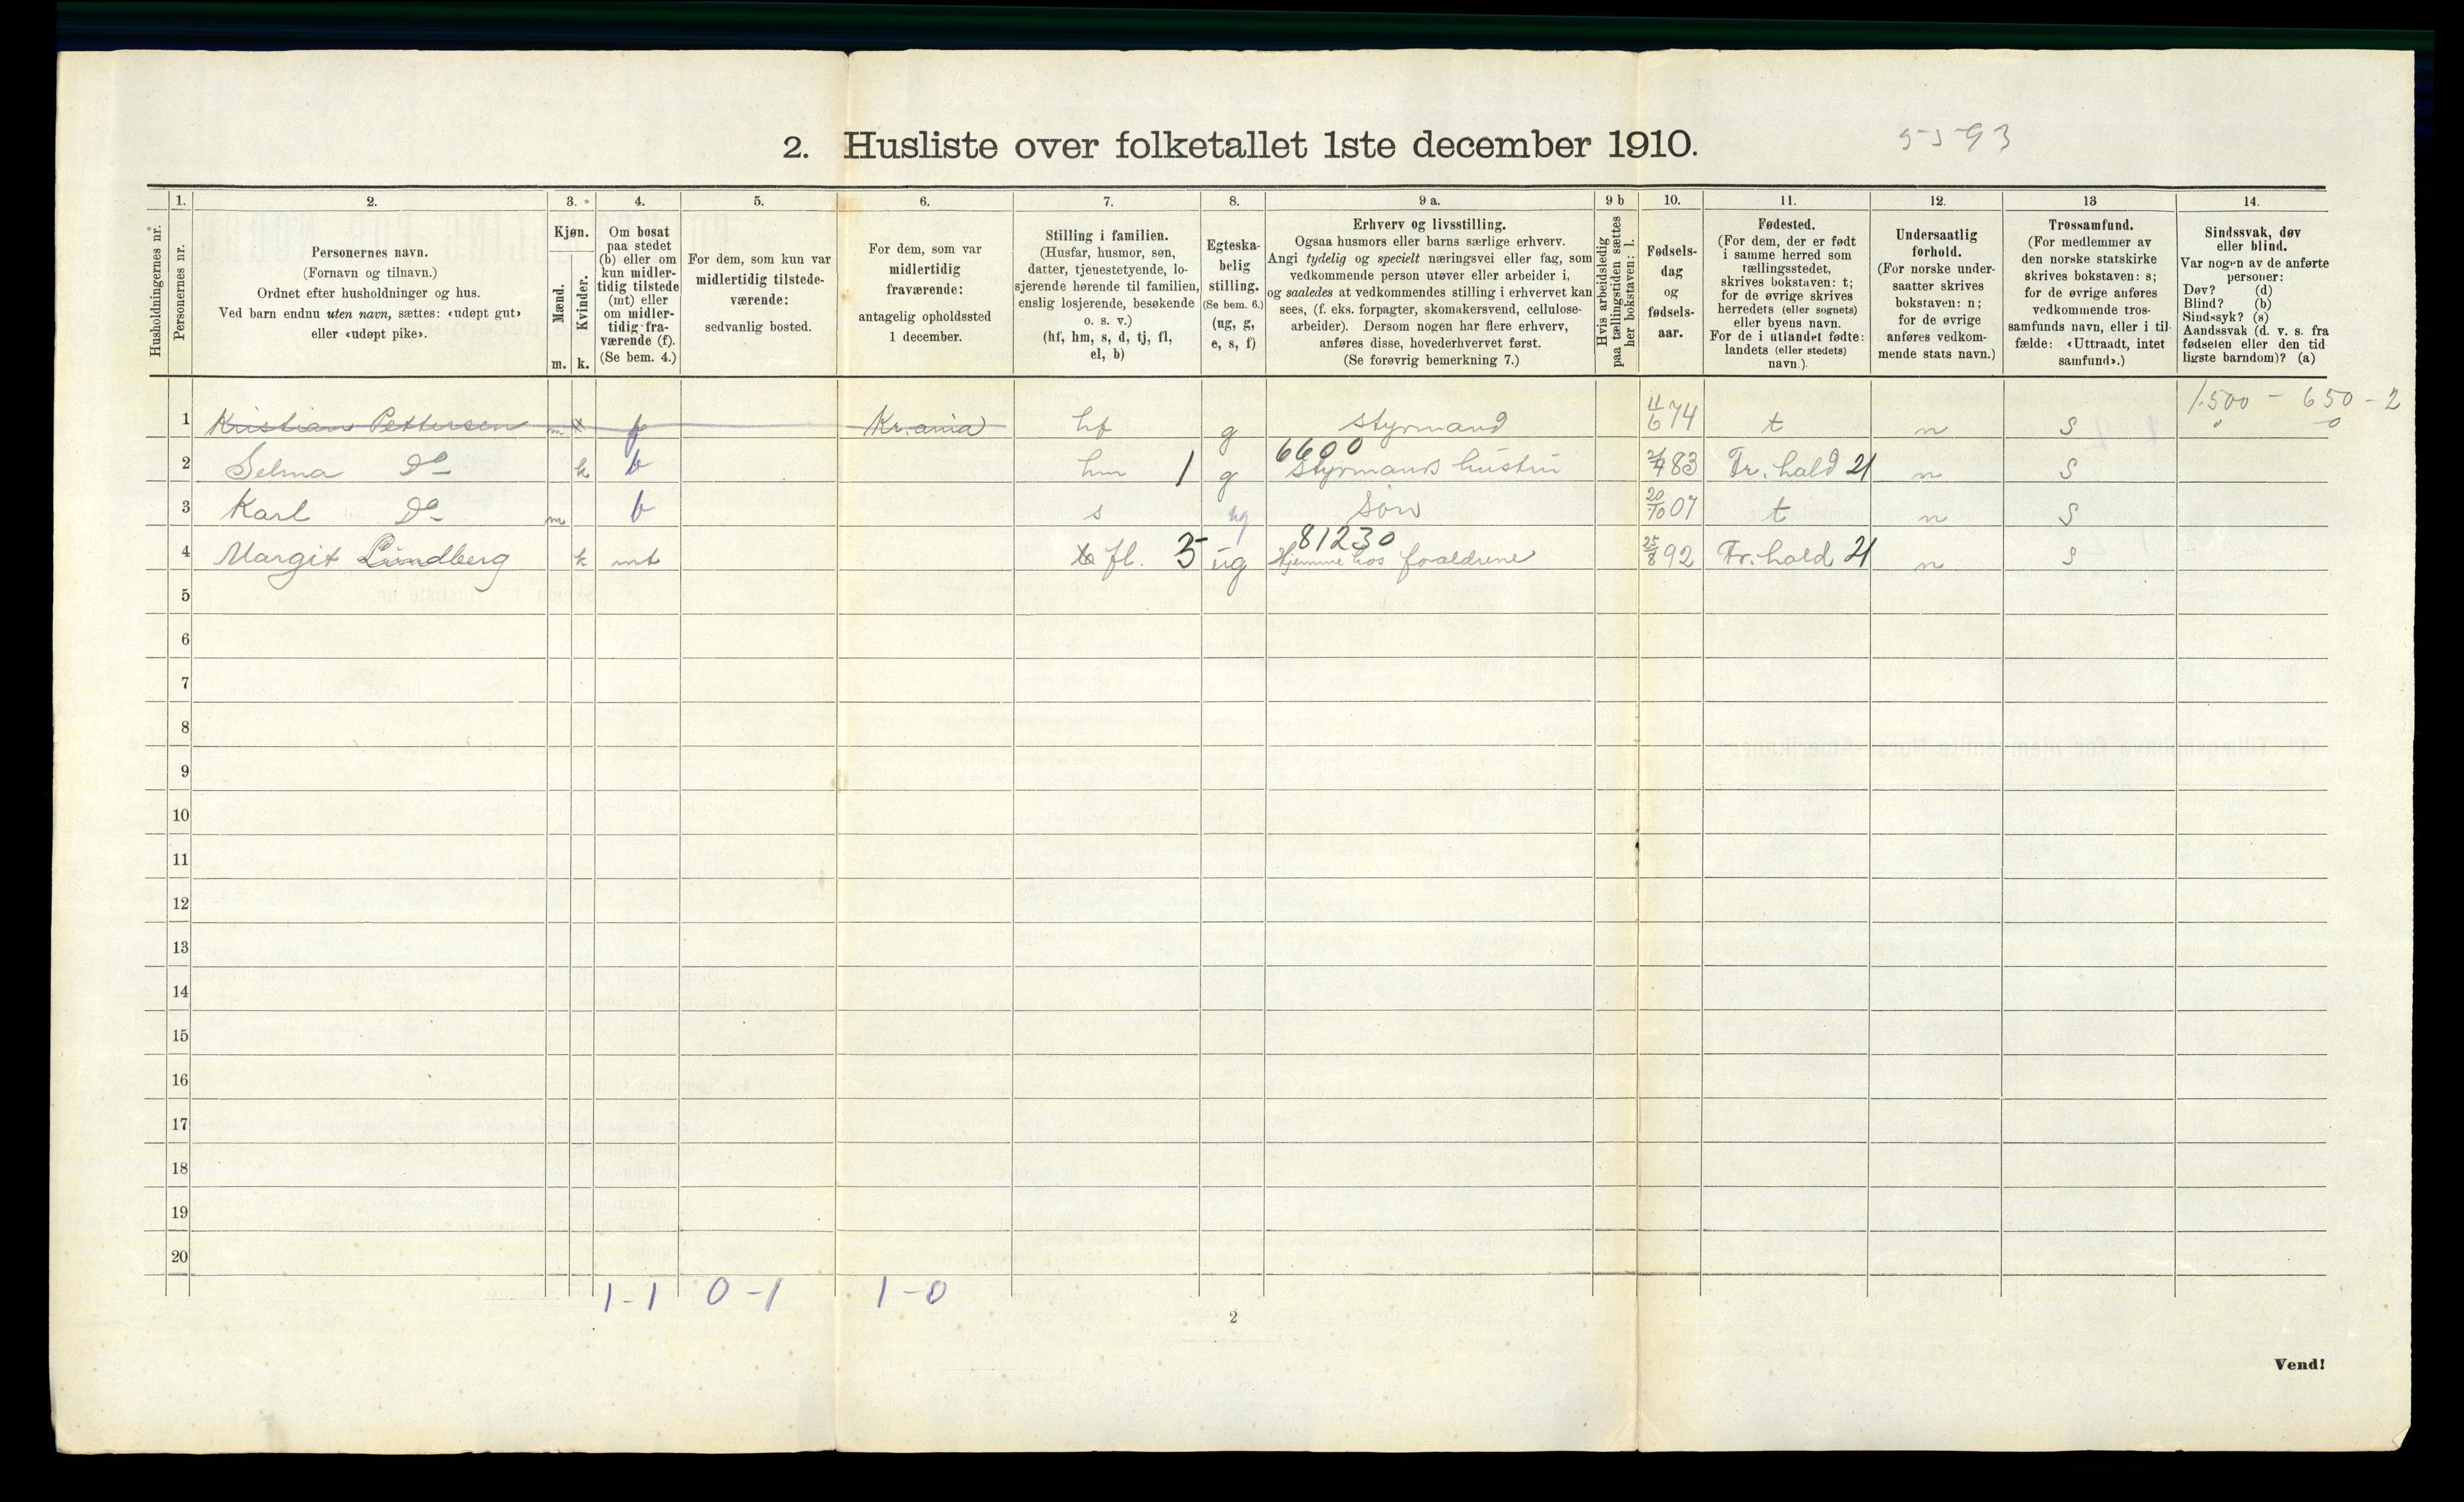 2. Husliste over folketallet 1ste december 1910.
1. 2. 3. 4. 5. 6. 7. 8. 9 a. 9 b 10. 11. 12. 13 14.
Husholdningernes nr.
Personernes nr.
Personernes navn.
(Fornavn og tilnavn.)
Ordnet efter husholdninger og hus.
Ved barn endnu uten navn, sættes: «udøpt gut»
eller «udøpt pike».
Kjøn.
Mænd.
Kvinder.
m. k.
Om bosat
paa stedet
(b) eller om
kun midler-
tidig tilstede
(mt) eller
om midler-
tidig fra-
værende (f).
(Se bem. 4.)
For dem, som kun var
midlertidig tilstede-
værende:
sedvanlig bosted.
For dem, som var
midlertidig
fraværende:
antagelig opholdssted
1 december.
Stilling i familien.
(Husfar, husmor, søn,
datter, tjenestetyende, lo-
sjerende hørende til familien,
enslig losjerende, besøkende
o. s. v.)
(hf, hm, s, d, tj, fl,
el, b)
Egteska-
belig
stilling.
(Se bem. 6.)
(ug, g,
e, s, f)
Erhverv og livsstilling.
Ogsaa husmors eller barns særlige erhverv.
Angi tydelig og specielt næringsvei eller fag, som
vedkommende person utøver eller arbeider i,
og saaledes at vedkommendes stilling i erhvervet kan
sees, (f. eks. forpagter, skomakersvend, cellulose-
arbeider). Dersom nogen har flere erhverv,
anføres disse, hovederhvervet først.
(Se forøvrig bemerkning 7.)
Hvis arbeidsledig
paa tællingstiden sættes
her bokstaven: l.
Fødsels-
dag
og
fødsels-
aar.
Fødested.
(For dem, der er født
i samme herred som
tællingsstedet,
skrives bokstaven: t;
for de øvrige skrives
herredets (eller sognets)
eller byens navn.
For de i utlandet fødte:
landets (eller stedets)
navn.)
Undersaatlig
forhold.
(For norske under-
saatter skrives
bokstaven: n;
for de øvrige
anføres vedkom-
mende stats navn.)
Trossamfund.
(For medlemmer av
den norske statskirke
skrives bokstaven: s;
for de øvrige anføres
vedkommende tros-
samfunds navn, eller i til-
fælde: «Uttraadt, intet
samfund».)
Sindssvak, døv
eller blind.
Var nogen av de anførte
personer:
Døv? (d)
Blind? (b)
Sindssyk? (s)
Aandssvak (d. v. s. fra
fødselen eller den tid-
ligste barndom)? (a)
1500 - 650 - 2
1 Kristian Pettersen m f Kr.ania hf g styrmand 11/6 74 t n s
6600
2 Selma Do k b hm 1 g Styrmands hustru 83 Fr.hald 21 n s
3 Karl Do m b s ug Søn 20/10 07 t n s
81230
4 Margit Lundberg k mt fl. 3 ug Hjemme hos foraldrene 25/8 92 Fr.hald 21 n s
5
6
7
8
9
10
11
12
13
14
15
16
17
18
19
20
1-1 0-1 1-0
2
Vend!